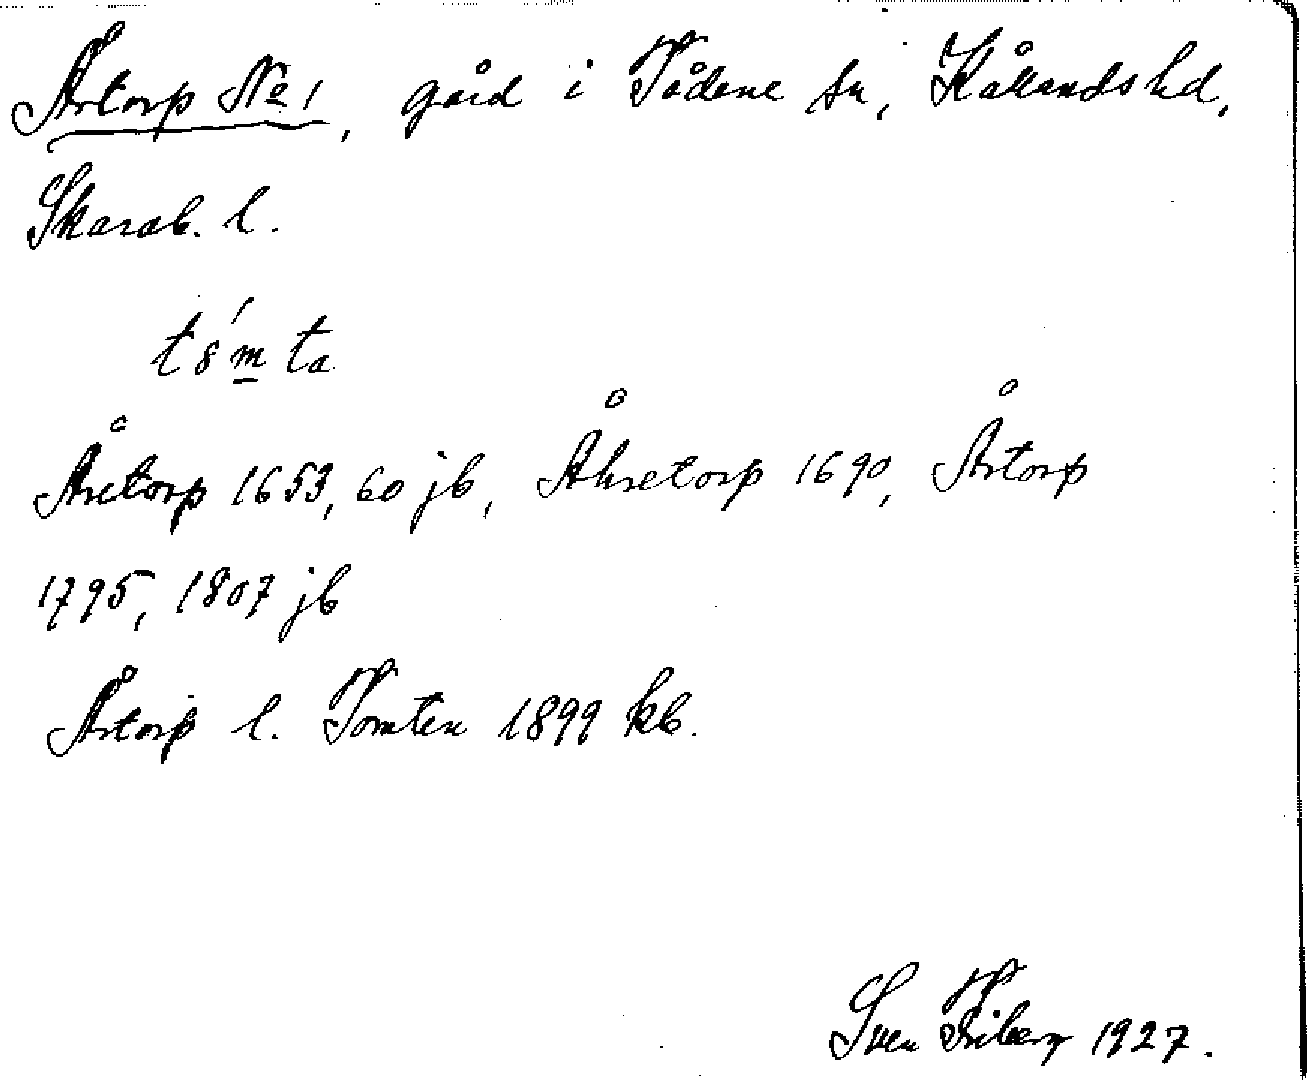 Årtorp No 1, gård i Tådene sn, Kållands hd,
Skarab. l.
t8́m̲ta
Åretorp 1653, 60 jb, Åhretorp 1690, Årtorp
1795, 1807 jb
Årtorp l. Tomten 1899 kb.
Sven Friberg 1927.